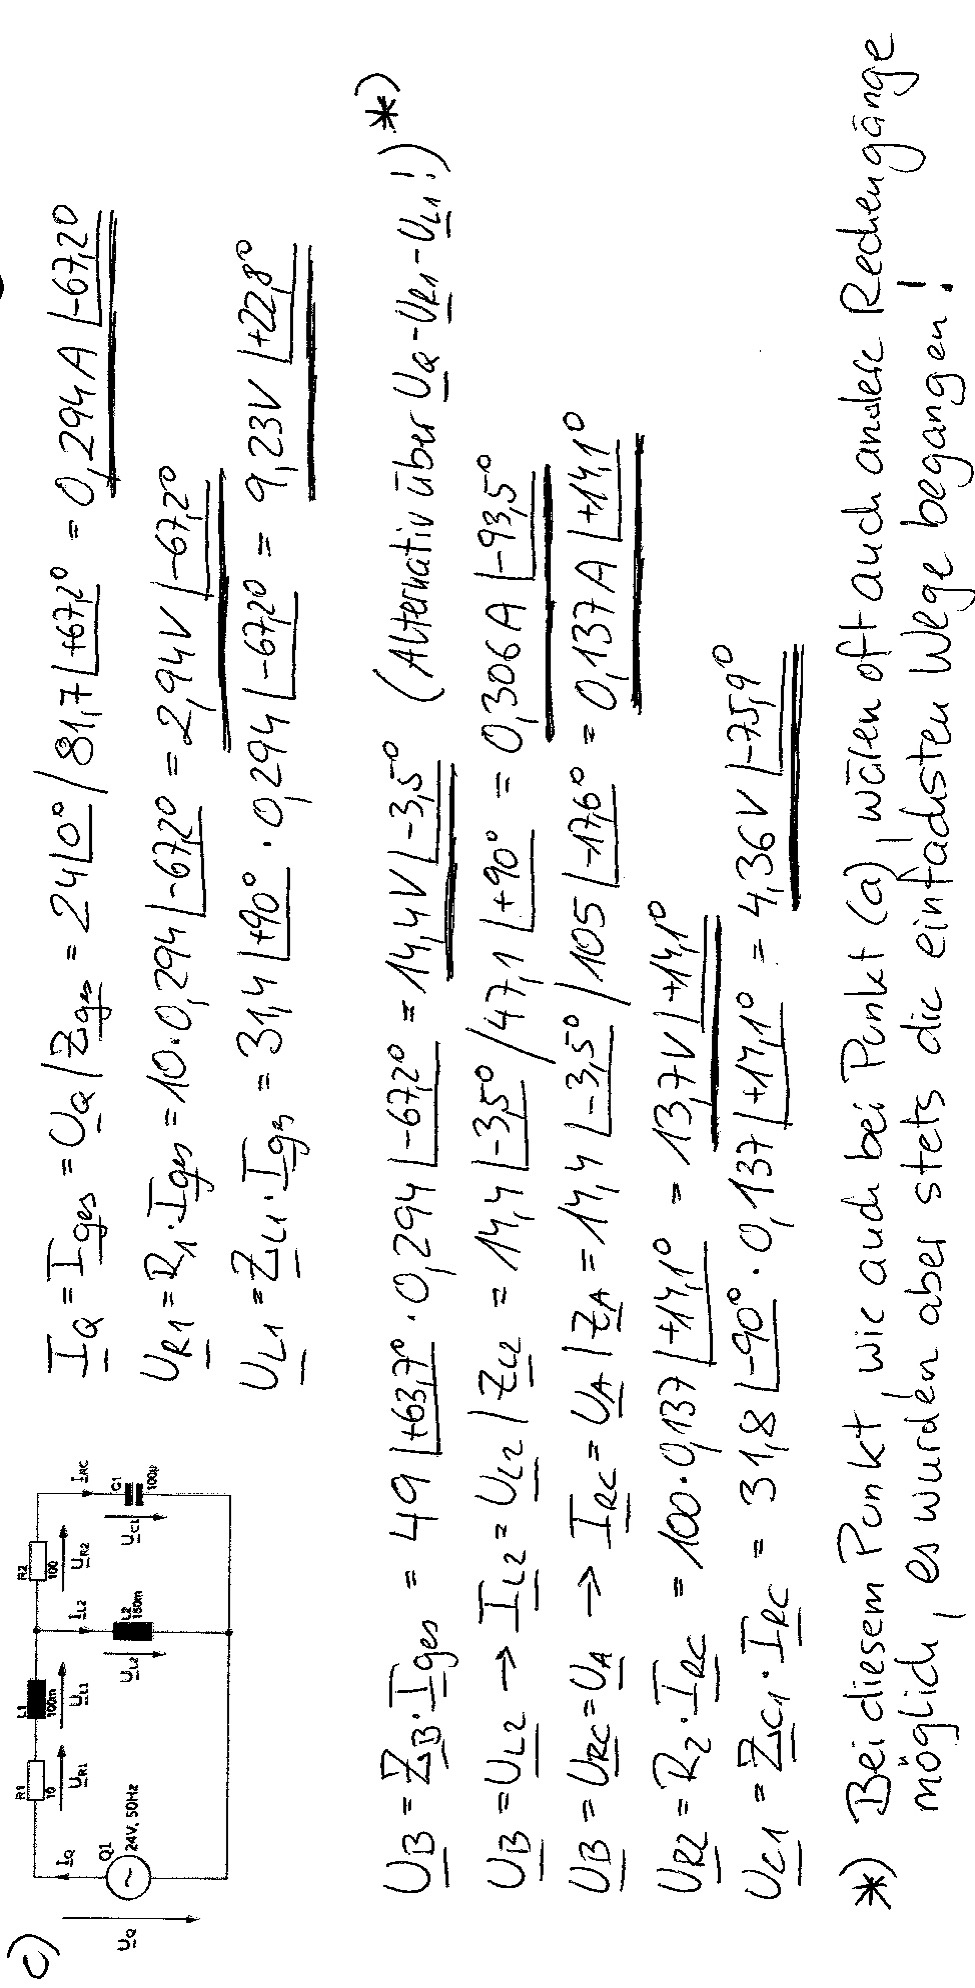 c)
U̲Q
I̲Q
Q1
24V, 50Hz
R1
10
U̲R1
L1
100m
U̲L1
I̲L2
L2
150m
U̲L2
R2
100
U̲R2
I̲RC
C1
100µ
U̲C1
I̲Q = I̲ges = U̲Q / Z̲ges = 24∠0° / 81,7∠+67,2° = 0,294A ∠-67,2°
U̲R1 = R1 · I̲ges = 10 · 0,294∠-67,2° = 2,94V ∠-67,2°
U̲L1 = Z̲L1 · I̲ges = 31,4∠+90° · 0,294∠-67,2° = 9,23V ∠+22,8°
U̲B = Z̲B · I̲ges = 49∠+63,7° · 0,294∠-67,2° = 14,4V∠-3,5° (Alternativ über U̲Q - U̲R1 - U̲L1!) *)
U̲B = U̲L2 → I̲L2 = U̲L2 / Z̲L2 = 14,4∠-3,5° / 47,1∠+90° = 0,306A∠-93,5°
U̲B = U̲RC = U̲A → I̲RC = U̲A / Z̲A = 14,4∠-3,5° / 105∠-17,6° = 0,137A∠+14,1°
U̲R2 = R2 · I̲RC = 100 · 0,137∠+14,1° = 13,7V∠+14,1°
U̲C1 = Z̲C1 · I̲RC = 31,8∠-90° · 0,137∠+14,1° = 4,36V∠-75,9°
*) Bei diesem Punkt, wie auch bei Punkt (a), wären oft auch andere Rechengänge
möglich, es wurden aber stets die einfachsten Wege begangen!